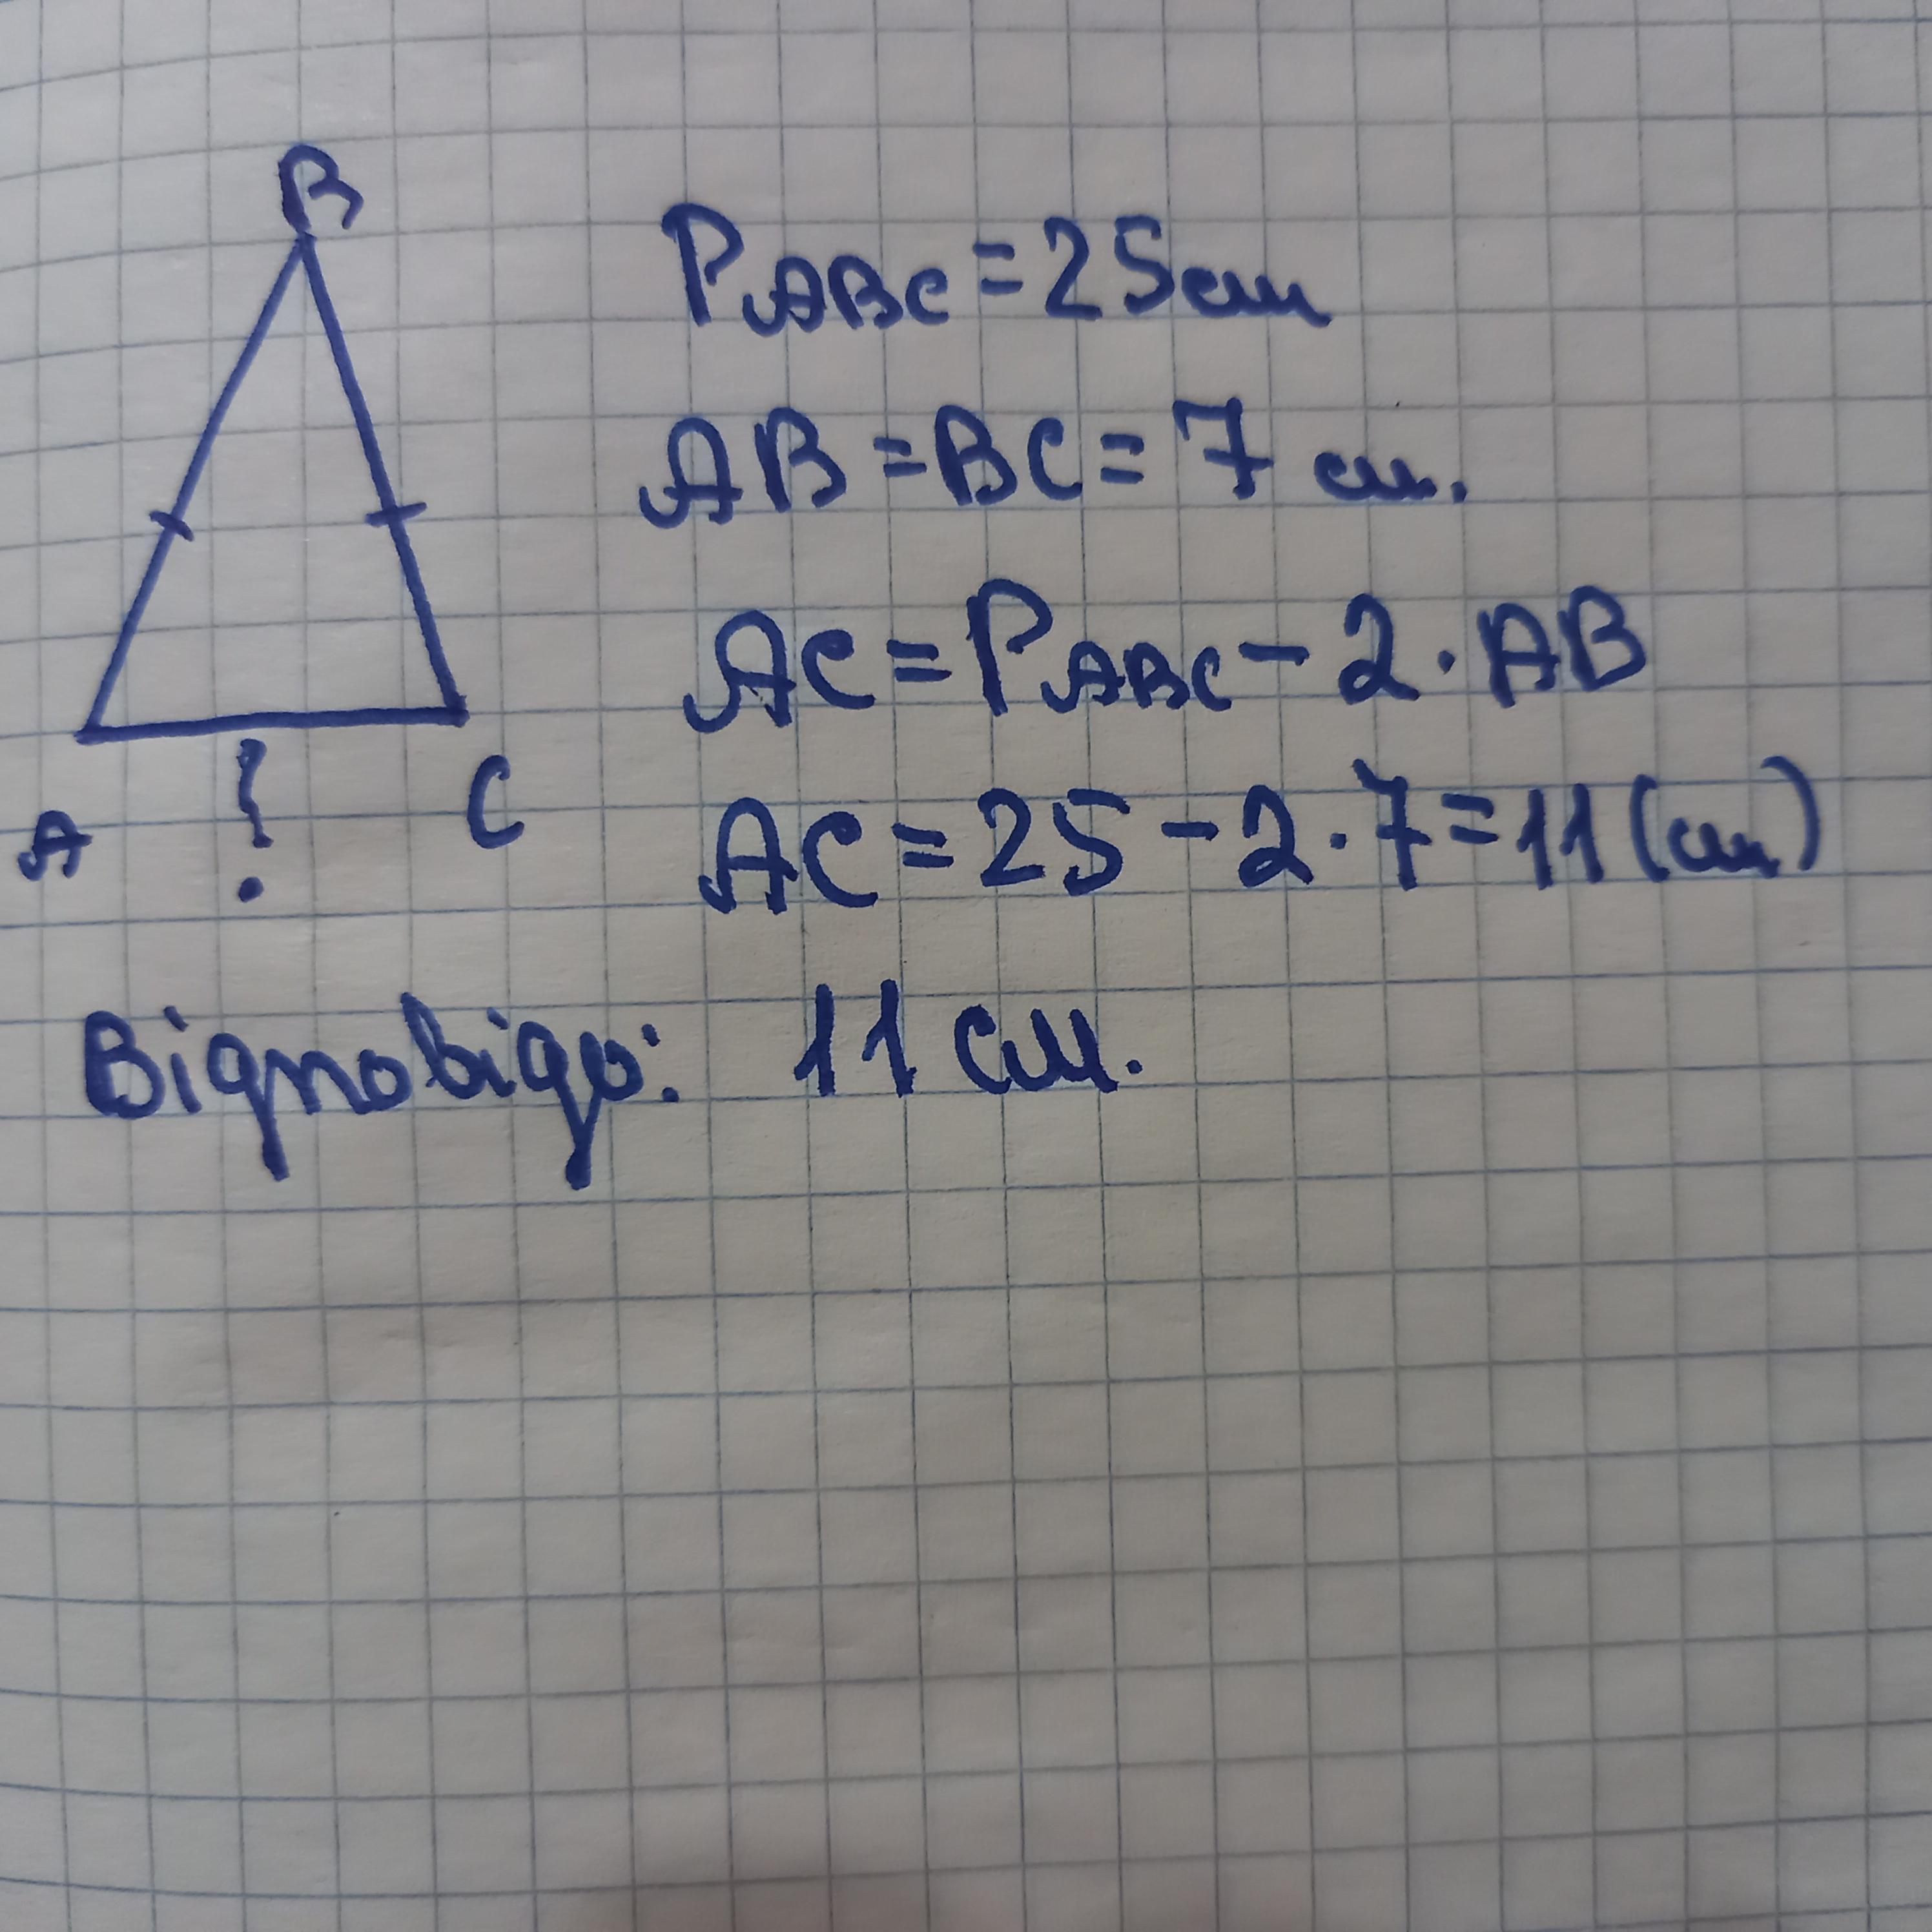 B
A ? C
P ABC = 25 см
AB = BC = 7 см.
AC = P ABC - 2 · AB
AC = 25 - 2 · 7 = 11 (см)
Відповідь: 11 см.